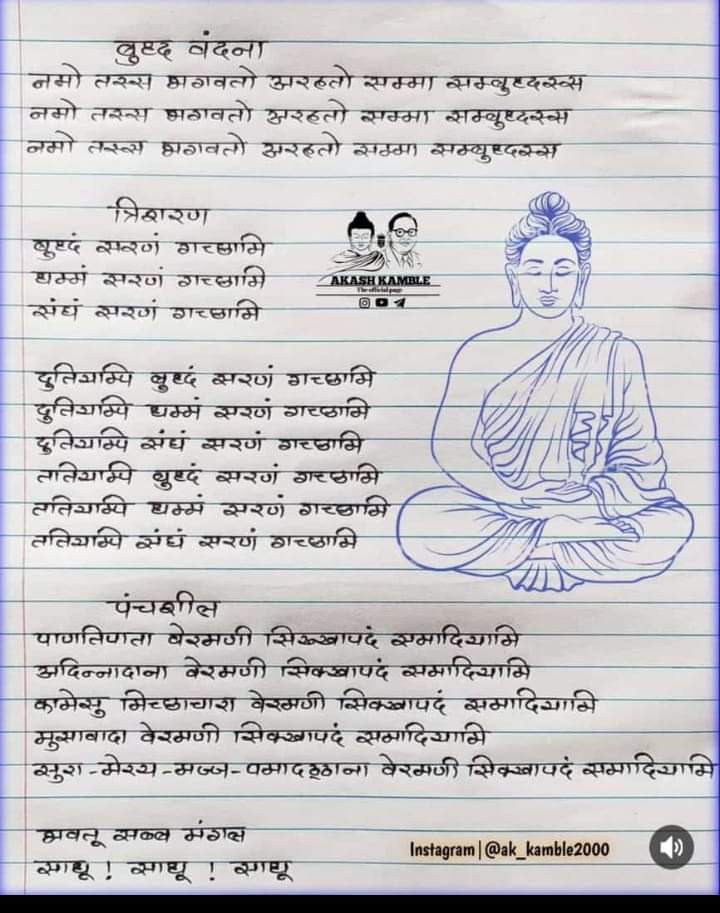 बुध्द वंदना
नमो तस्स भगवतो अरहतो सम्मा सम्बुध्दस्स
नमो तस्स भगवतो अरहतो सम्मा सम्बुध्दस्स
नमो तस्स भगवतो अरहतो सम्मा सम्बुध्दस्स
त्रिशरण
बुध्दं सरणं गच्छामि
धम्मं सरणं गच्छामि
संघं सरणं गच्छामि
AKASH KAMBLE
The official page
दुतियाम्पि बुध्दं सरणं गच्छामि
दुतियाम्पि धम्मं सरणं गच्छामि
दुतियाम्पि संघं सरणं गच्छामि
ततियाम्पि बुध्दं सरणं गच्छामि
ततियाम्पि धम्मं सरणं गच्छामि
ततियाम्पि संघं सरणं गच्छामि
पंचशील
पाणतिपाता वेरमणी सिख्खापदं समादियामि
अदिन्नादाना वेरमणी सिक्खापदं समादियामि
कामेसु मिच्छाचारा वेरमणी सिक्खापदं समादियामि
मुसावादा वेरमणी सिक्खापदं समादियामि
सुरा-मेरय-मज्ज-पमादठ्ठाना वेरमणी सिक्खापदं समादियामि
भवतू सब्ब मंगल
साधू ! साधू ! साधू
Instagram | @ak_kamble2000